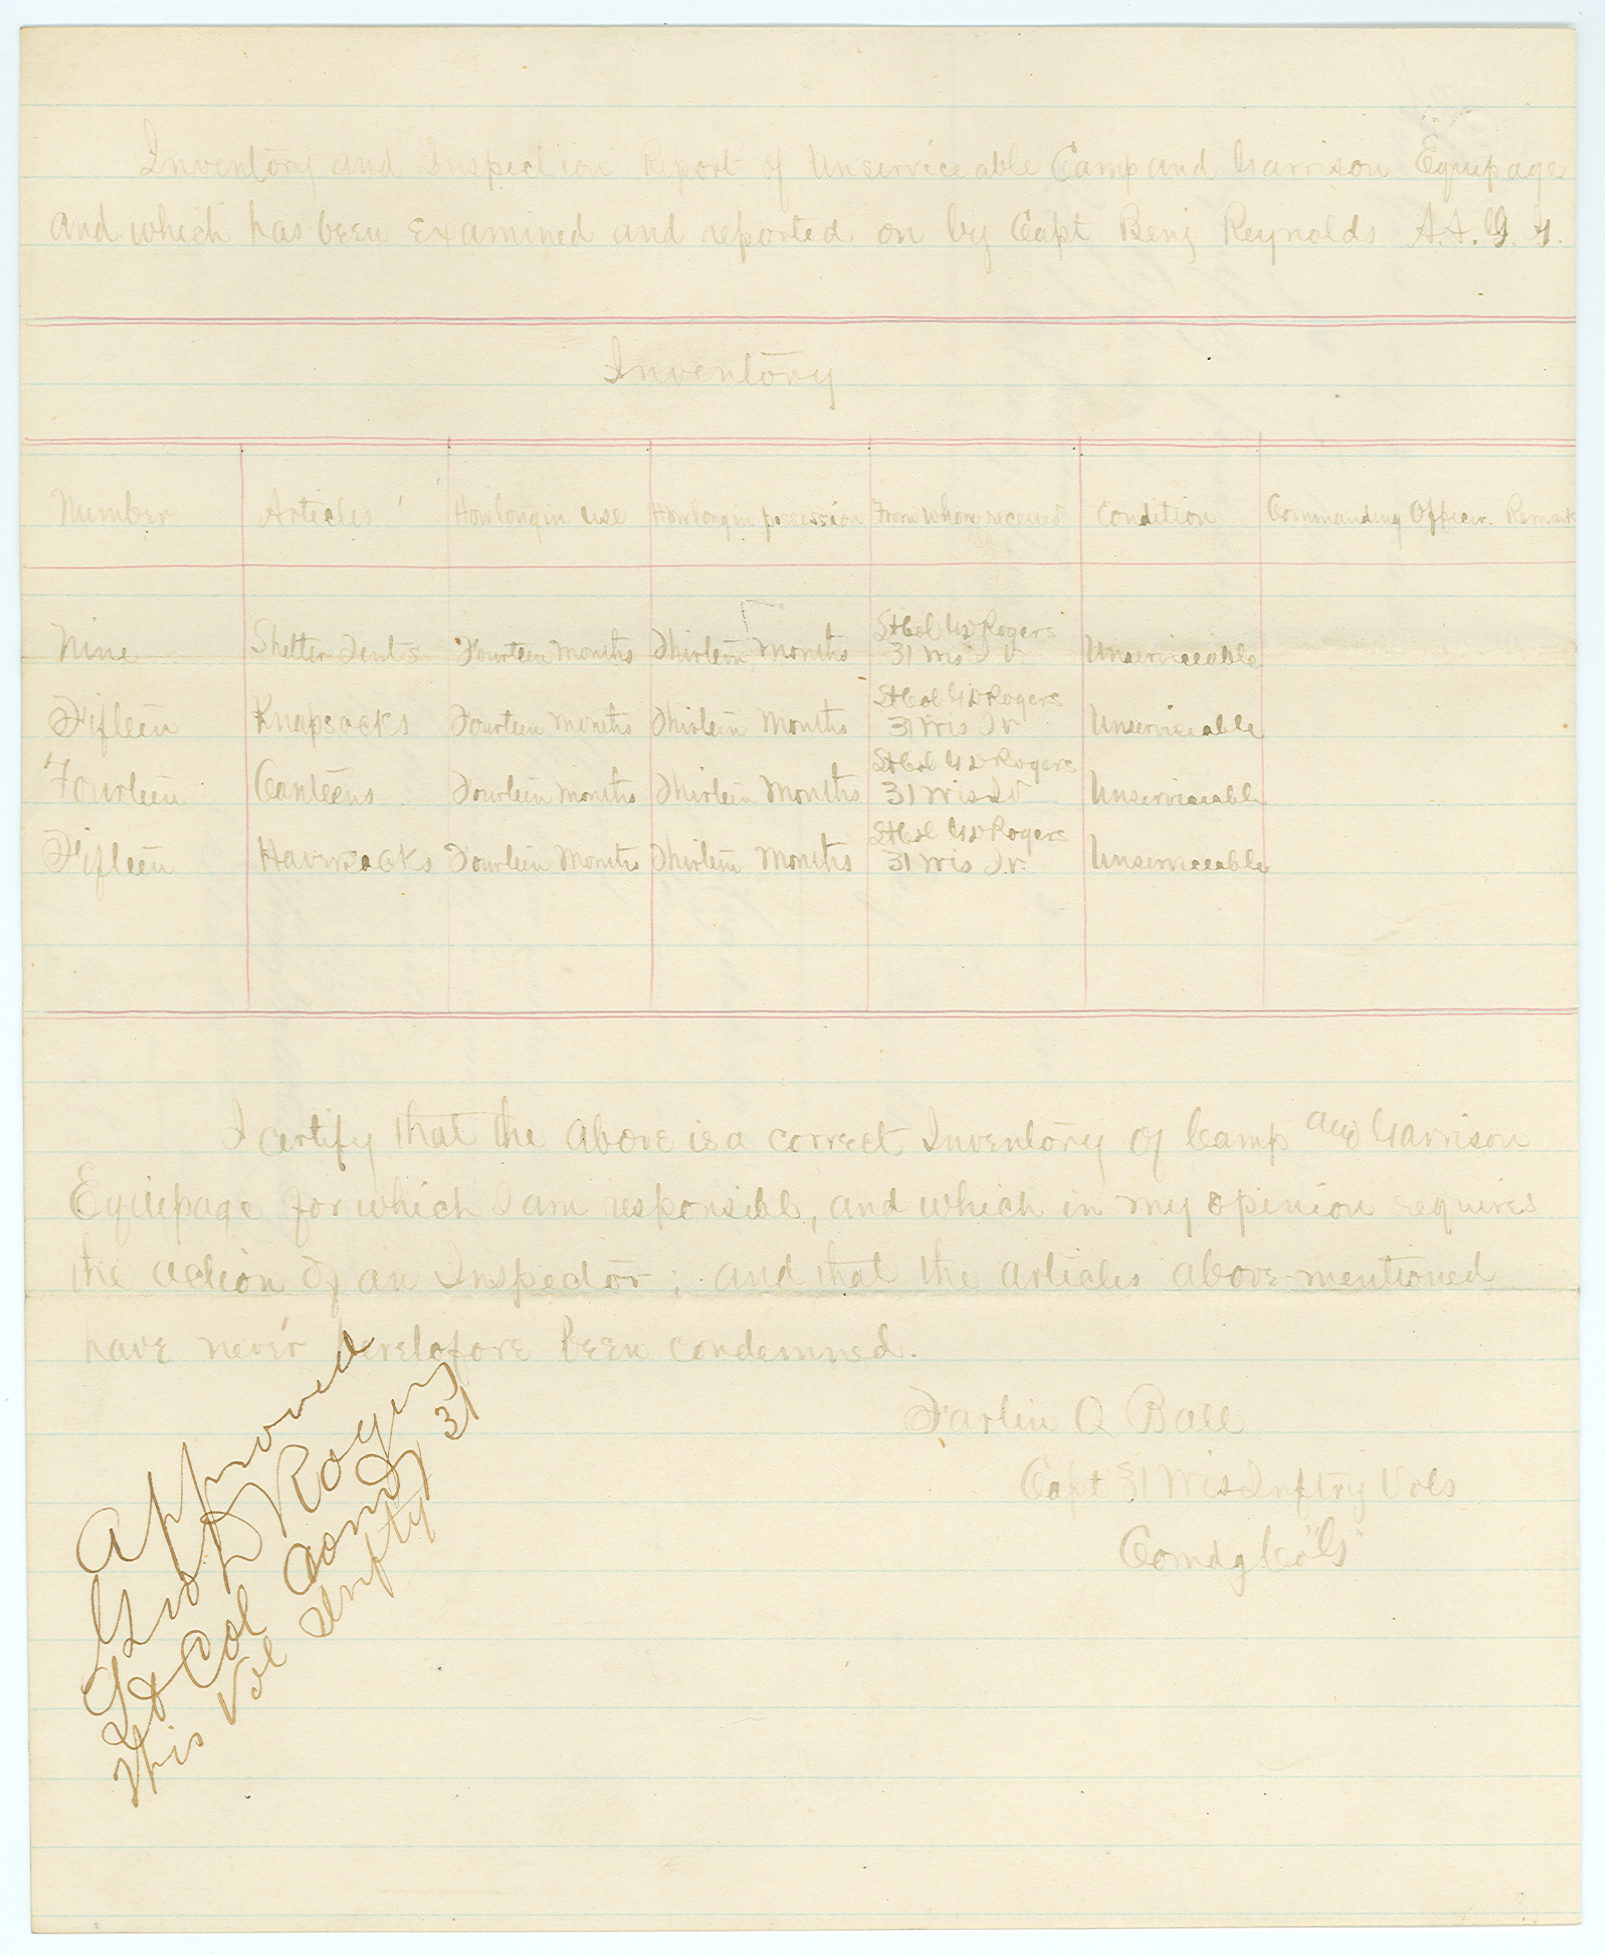 Inventory and Inspection Report of Unserviceable Camp and Garrison Equipage
and which has been examined and reported on by Capt Benj Reynolds A.A.I.G.
Inventory
Number Articles How long in use How long in possession From whom received Condition Commanding Officer. Remark
Nine Shelter Tents Fourteen Months Thirteen Months Lt Col G D Rogers 31 Wis I. V. Unserviceable
Fifteen Knapsacks Fourteen Months Thirteen Months Lt Col G D Rogers 31 Wis I V Unserviceable
Fourteen Canteens Fourteen Months Thirteen Months Lt Col G D Rogers 31 Wis I V Unserviceable
Fifteen Haversacks Fourteen Months Thirteen Months Lt Col G D Rogers 31 Wis I. V. Unserviceable
I certify that the above is a correct Inventory of Camp and Garrison
Equipage for which I am responsible, and which in my opinion requires
the action of an Inspector; and that the articles above mentioned
have never heretofore been condemned.
Farlin Q Ball
Capt 31 Wis Inftry Vols
Comdg Co "G"
Approved
G D Rogers
Lt Col Comdg 31
Wis Vol Infty